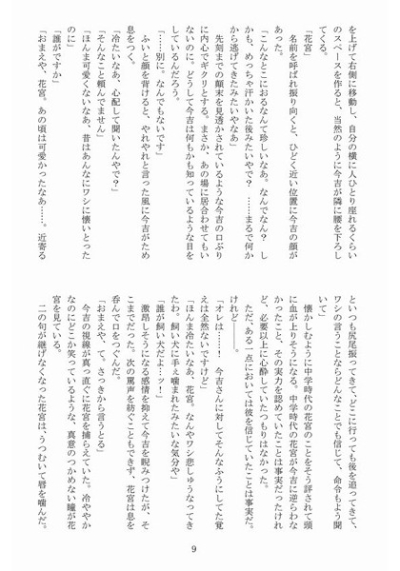 を上げて右側に移動し、自分の横に人ひとり座れるくらい
のスペースを作ると、当然のように今吉が隣に腰を下ろし
てくる。
「花宮」
名前を呼ばれ振り向くと、ひどく近い位置に今吉の顔が
あった。
「こんなとこにおるなんて珍しいなあ。なんでなん？　し
かも、めっちゃ汗かいた後みたいやで？　――まるで何か
から逃げてきたみたいやなあ」
先刻までの顛末を見透かされているような今吉の口ぶり
に内心でギクリとする。まさか、あの場に居合わせてもい
ないのに、どうして今吉は何もかも知っているような目を
しているんだろう。
「……別に。なんでもないです」
ふいと顔を背けると、やれやれと言った風に今吉がため
息をつく。
「冷たいなあ、心配して聞いたんやで？」
「そんなこと頼んでません」
「ほんま可愛くないなあ。昔はあんなにワシに懐いとった
のに」
「誰がですか」
「おまえや、花宮。あの頃は可愛かったなあ……。近寄る
といつも尻尾振ってきて、どこに行っても後を追ってきて、
ワシの言うことならどんなことでも信じて、命令もよう聞
いて」
懐かしむように中学時代の花宮のことをそう評されて頭
に血が上りそうになる。中学時代の花宮が今吉に逆らわな
かったことと、その実力を認めていたことは事実だったけれ
ど、必要以上に心酔していたつもりはなかった。
ただ、ある一点においては彼を信じていたことは事実だ。
けれど――。
「オレは……！　今吉さんに対してそんなふうにしてた覚
えは全然ないですけど」
「ほんま冷たいなあ、花宮。なんやワシ悲しゅうなってき
たわ。飼い犬に手ぇ噛まれたみたいな気分や」
「誰が飼い犬だよーッ！」
激昂しそうになる感情を抑えて今吉を睨みつけたが、そ
こまでだった。次の罵声を紡ぐこともできず、花宮は息を
呑んで口をつぐんだ。
「おまえや、て。さっきから言うとる」
今吉の視線が真っ直ぐに花宮を捕らえていた。冷ややか
なのにどこか笑っているような、真意のつかめない瞳が花
宮を見ている。
二の句が継げなくなった花宮は、うつむいて唇を噛んだ。
9